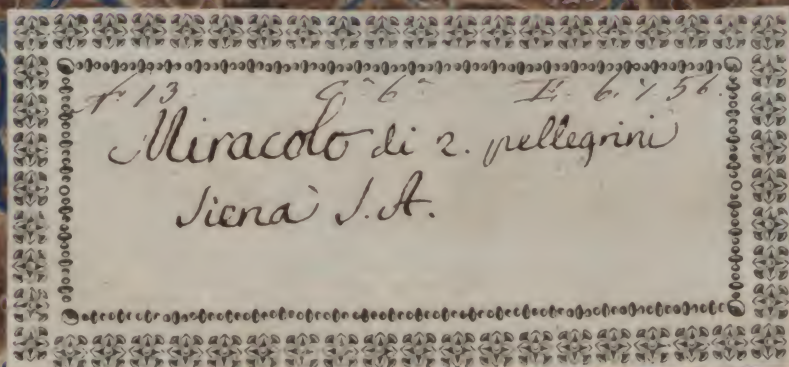 N. 13 C.ª 6.ª E. 6. 7 56.
Miracolo di 2. pellegrini
Siena S. A.